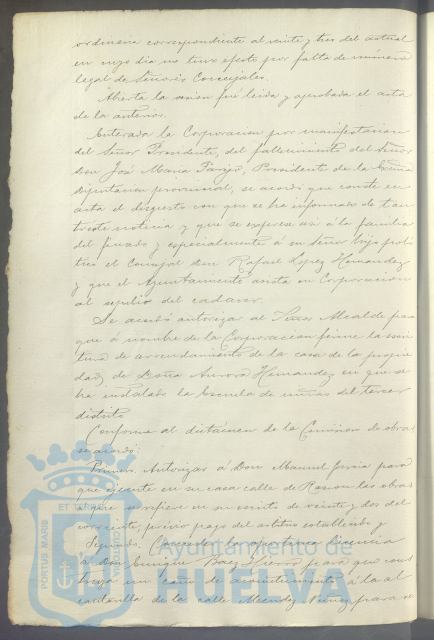 ordinaria correspondiente al veinte y tres del actual
en cuyo dia no tuvo efecto por falta de número
legal de Señores Concejales.
Abierta la sesion fué leida y aprobada el acta
de la anterior.
Enterada la Corporacion por manifestacion
del Señor Presidente, del fallecimiento del Señor
Don José Maria Parejo, Presidente de la Excma
Diputacion provincial, se acordó que conste en
acta el disgusto con que se ha informado de tan
triste noticia y que se exprese así á la familia
del finado y especialmente á su Señor hijo poli
tico el Concejal Don Rafael Lopez Hernandez
y que el Ayuntamiento asista en Corporacion
al sepelio del cadaver.
Se acordó autorizar al Señor Alcalde para
que á nombre de la Corporacion firme la escri
tura de arrendamiento de la casa de la propie
dad de Doña Aurora Hernandez en que se
ha instalado la Escuela de niñas del tercer
distrito
Conforme al dictámen de la Comision de obras
se acordó:
Primero. Autorizar á Don Manuel para
que ejecute en su casa calle de Rascon las obras
á que se refiere en su escrito de veinte y dos del
corriente, previo pago del arbitrio establecido y
Segundo. Conceder la oportuna licencia
á Don Enrique Baez para que cons
truya un caño de acometimiento á la al
cantarilla de la calle Mendez Nuñez para
Ayuntamiento de
HUELVA
PORTUS MARIS
ET TERRAE
CUSTODIA